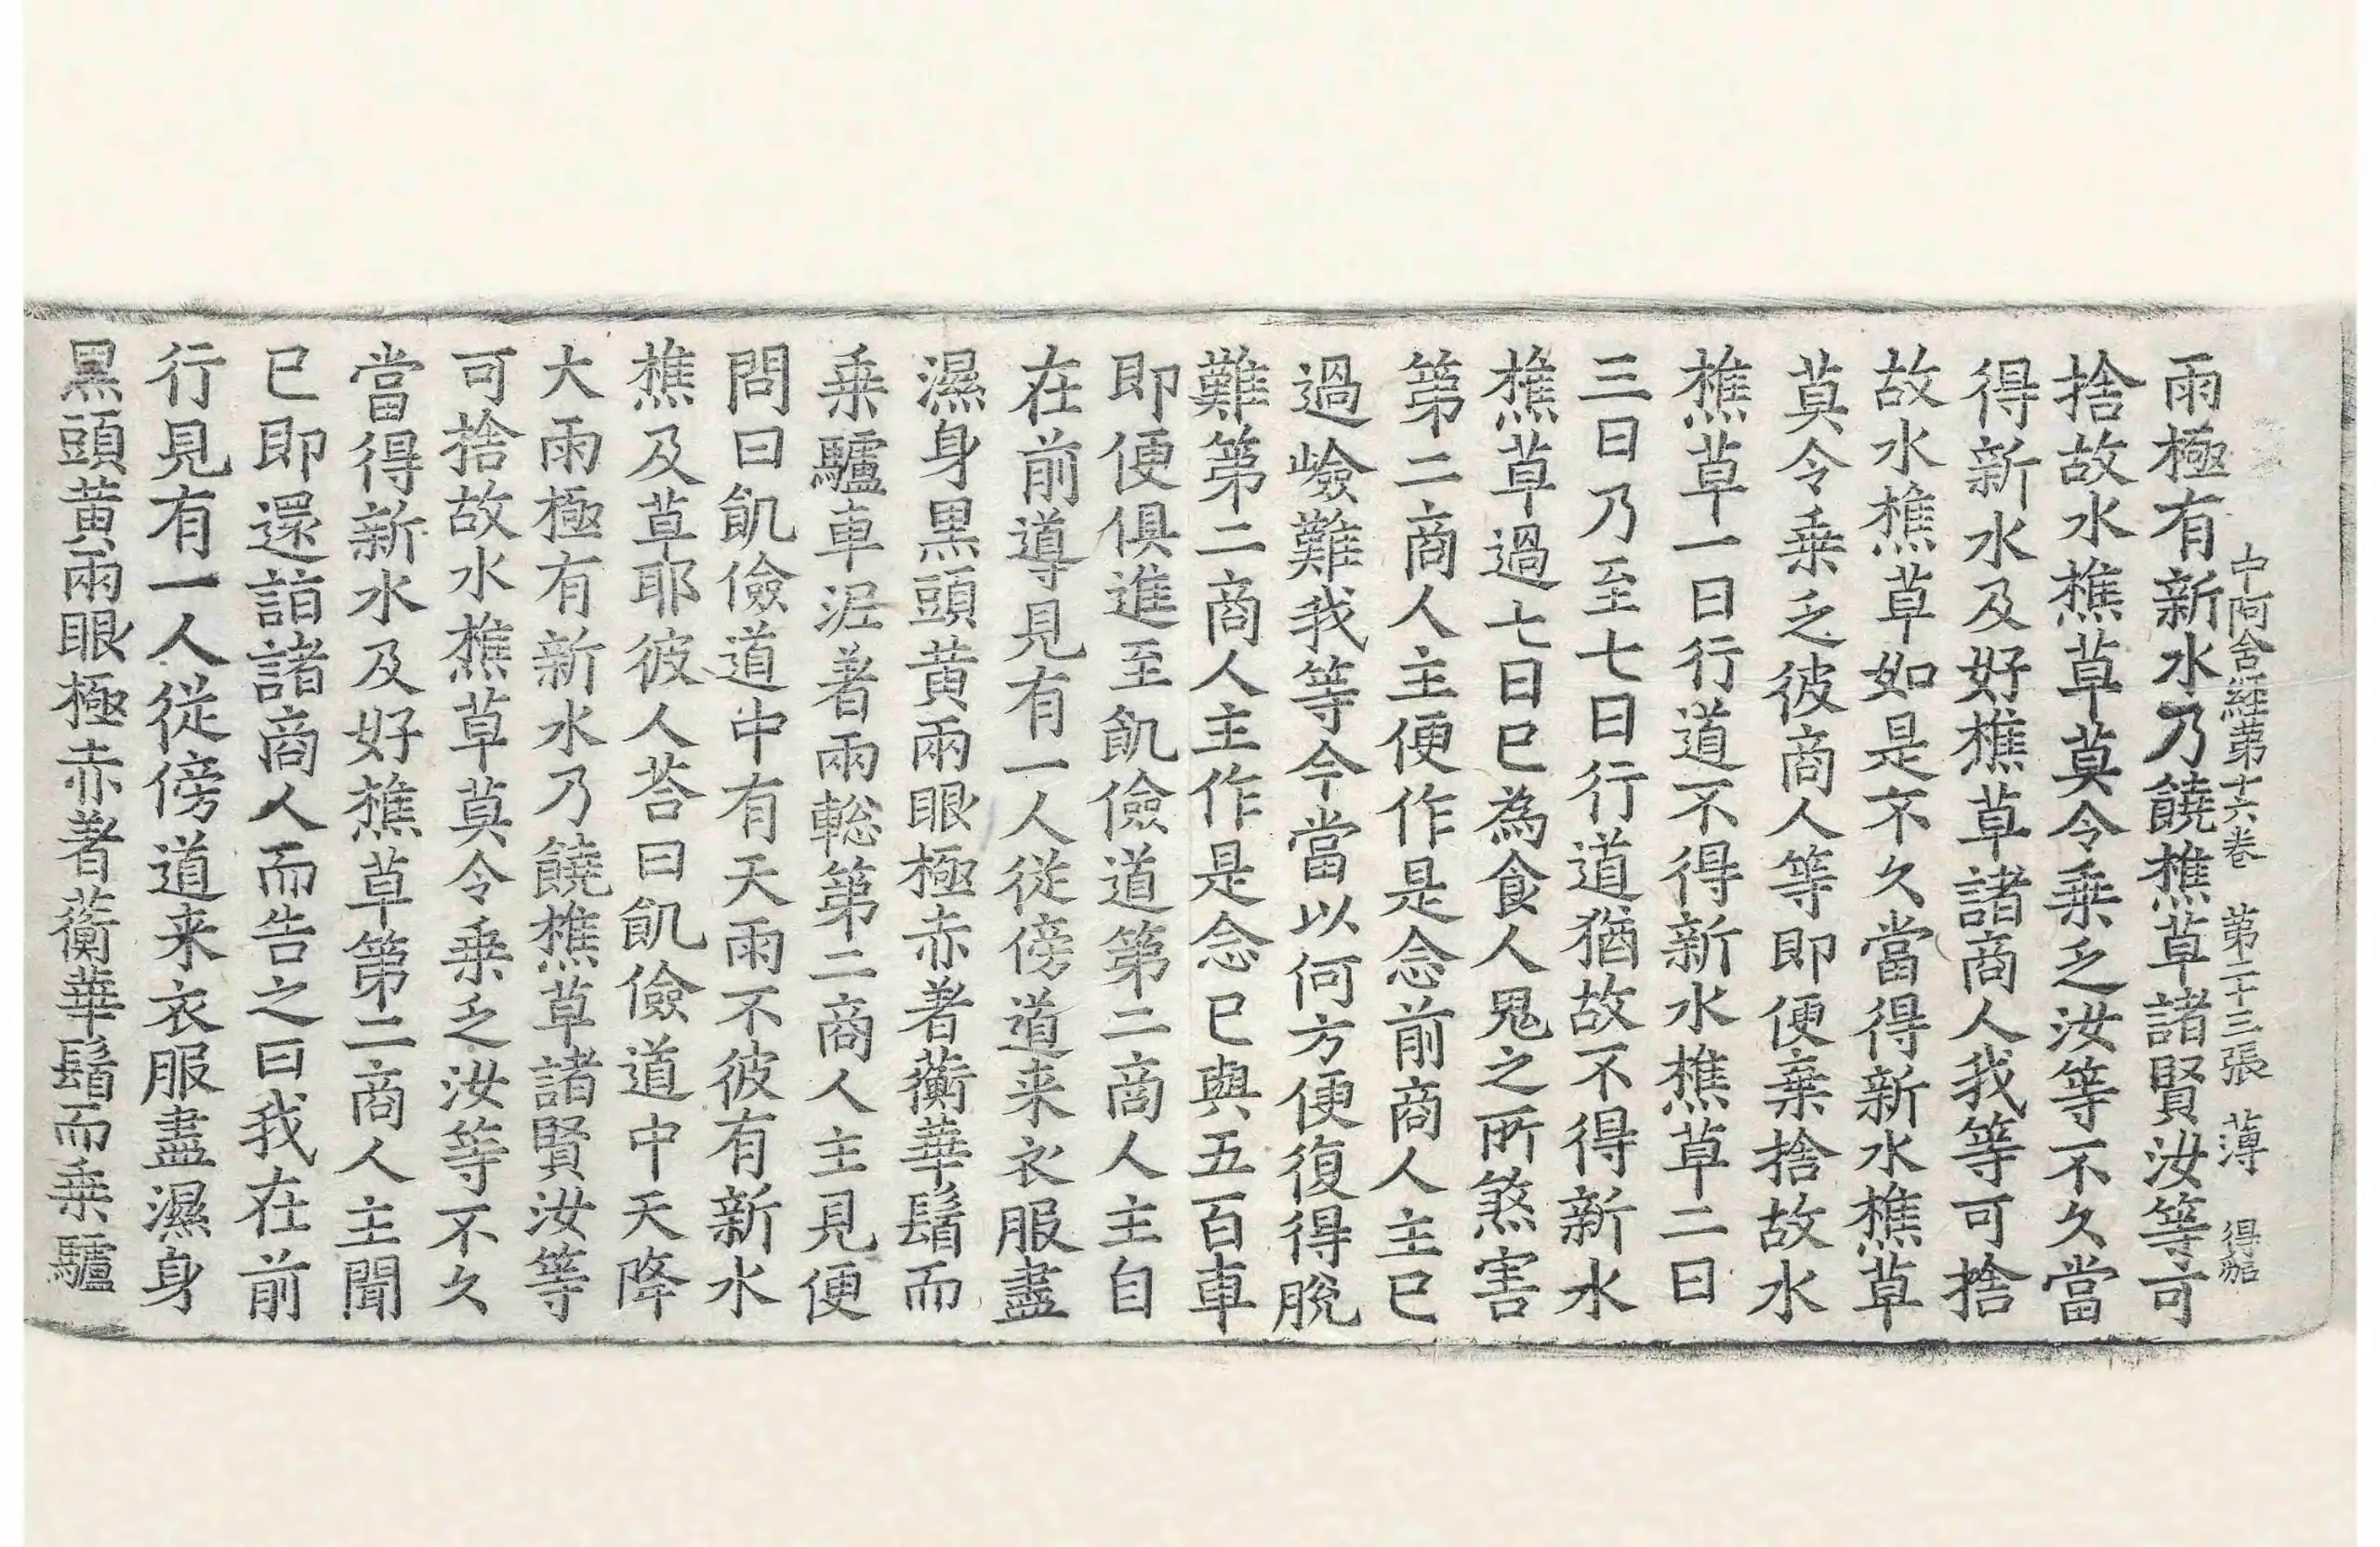 中阿含經第十六卷　第二十三張　薄　得㔶
雨極有新水乃饒樵草諸賢汝等可
捨故水樵草莫令乗乏汝等不久當
得新水及好樵草諸商人我等可捨
故水樵草如是不久當得新水樵草
莫令乗乏彼商人等即便棄捨故水
樵草一日行道不得新水樵草二日
三日乃至七日行道猶故不得新水
樵草過七日已為食人鬼之所煞害
第二商人主便作是念前商人主已
過嶮難我等今當以何方便復得脫
難第二商人主作是念已與五百車
即便俱進至飢儉道第二商人主自
在前導見有一人從傍道来衣服盡
濕身黒頭黄兩眼極赤著蘅華鬘而
乗驢車泥著兩䡯第二商人主見便
問曰飢儉道中有天雨不彼有新水
樵及草耶彼人荅曰飢儉道中天降
大雨極有新水乃饒樵草諸賢汝等
可捨故水樵草莫令乗乏汝等不久
當得新水及好樵草第二商人主聞
已即還詣諸商人而告之曰我在前
行見有一人從傍道来衣服盡濕身
黒頭黄兩眼極赤著蘅華鬘而乗驢